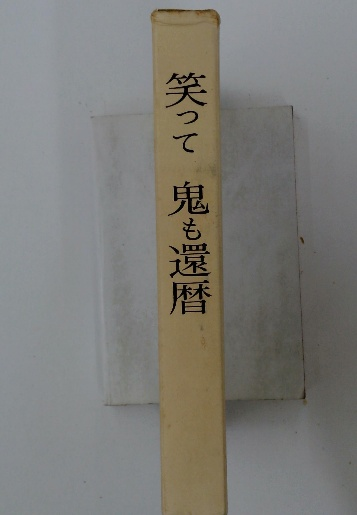 笑って 鬼も還暦